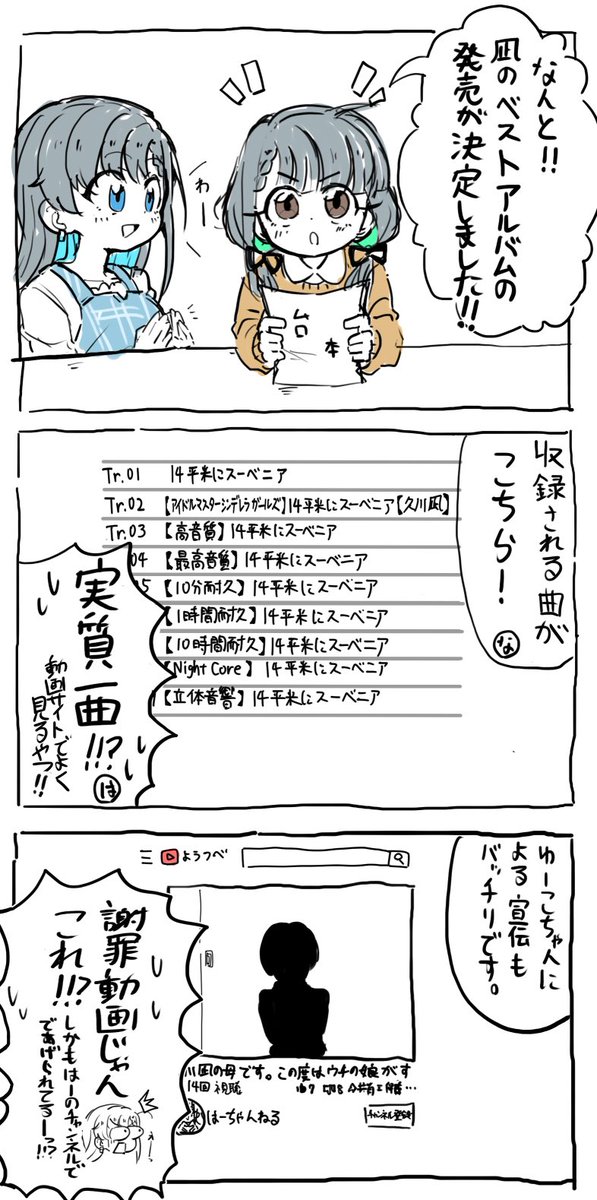 なんと!!
凪のベストアルバムの
発売が決定しました!!
わー
台本
収録される曲が
こちら!
な
Tr.01 14平米にスーベニア
Tr.02 【アイドルマスターシンデレラガールズ】14平米にスーベニア【久川凪】
Tr.03 【高音質】14平米にスーベニア
04 【最高音質】14平米にスーベニア
5 【10分耐久】14平米にスーベニア
【1時間耐久】14平米にスーベニア
【10時間耐久】14平米にスーベニア
【Night Core】 14平米にスーベニア
【立体音響】14平米にスーベニア
実質一曲!!?
は
動画サイトでよく
見るやつ!!
ゆーこちゃんに
よる宣伝も
バッチリです。
ようつべ
川凪の母です。この度はウチの娘がす
14回視聴
はーちゃんねる
チャンネル登録
謝罪動画じゃん
これ!!?
しかもはーのチャンネルで
であげられてるーっ!!?